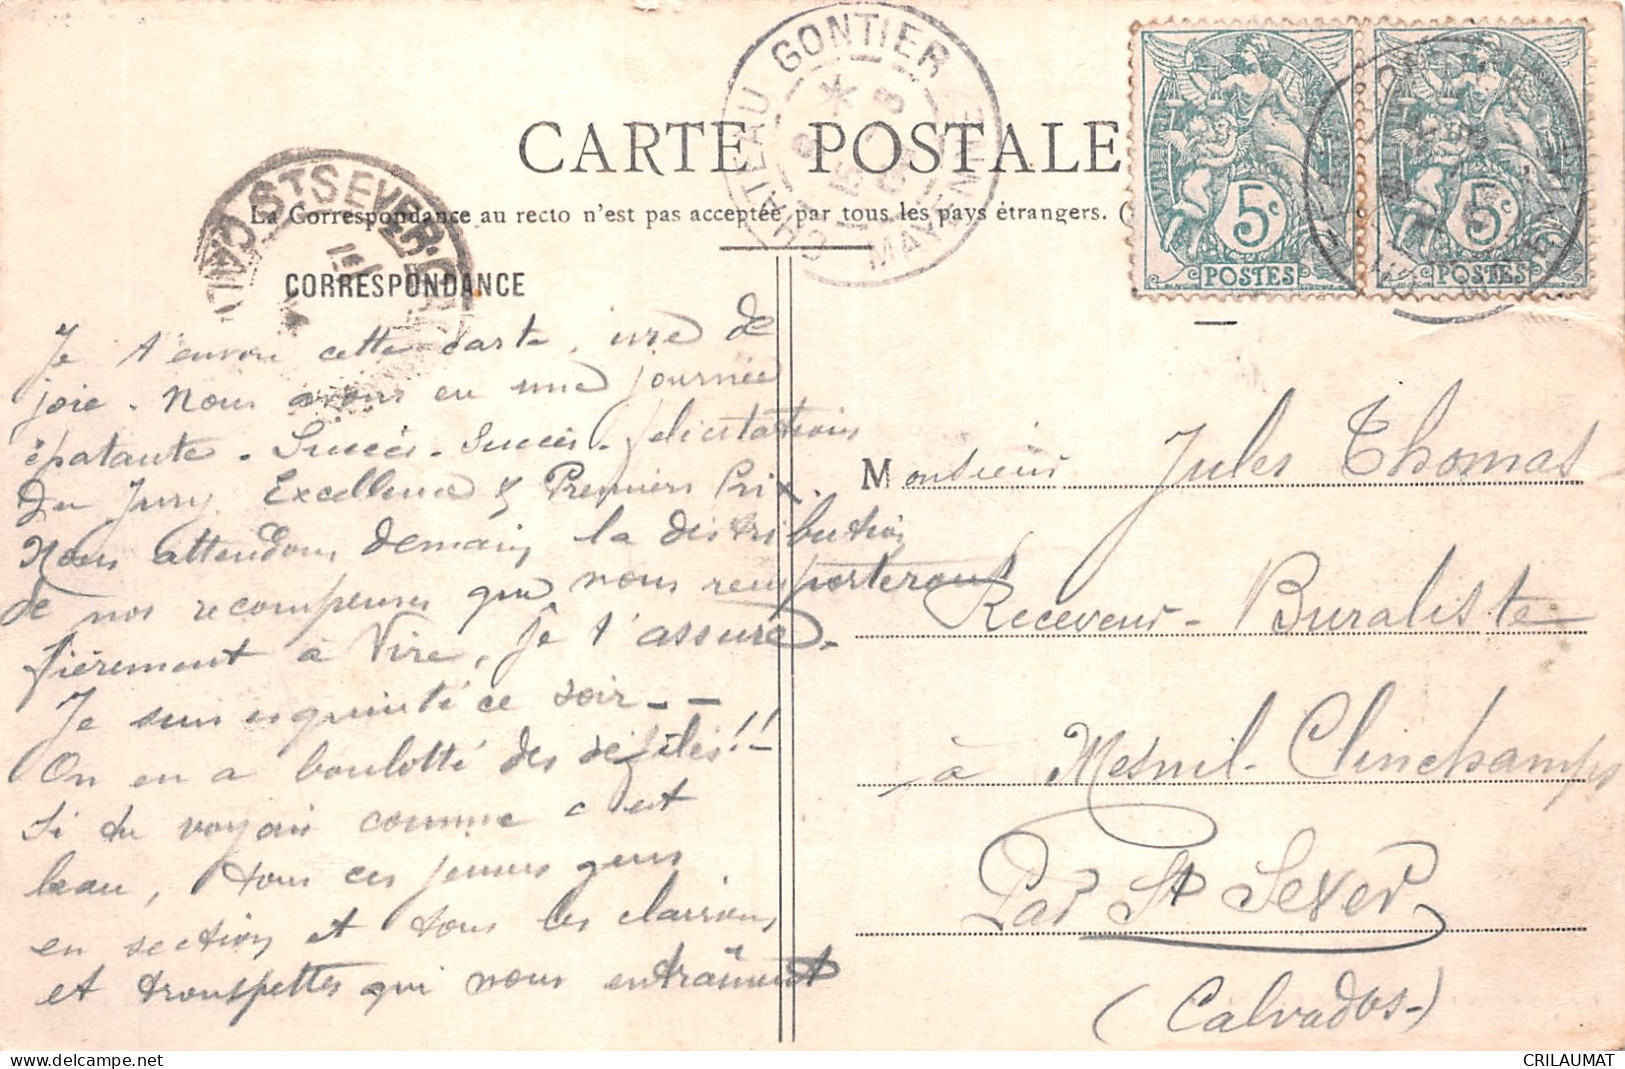 CARTE POSTALE
La Correspondance au recto n'est pas acceptée par tous les pays étrangers. (
CORRESPONDANCE
CHATEAU GONTIER
MAYENNE
ST SEVER CALVADOS
5c
POSTES
5c
POSTES
Je t'envoie cette carte, ivre de
joie. Nous avons eu une journée
épatante. Succès. Succès. félicitations
du Jury. Excellence & Premiers Prix.
Nous attendons demain la distribution
de nos récompenses que nous remporterons
fièrement à Vire, je t'assure.
Je suis esquinté ce soir _ _
On en a boulotté des défilés!!
Si tu voyais comme c'est
beau, tous ces jeunes gens
en section et tous les clairons
et trompettes qui nous entraînent
Monsieur Jules Thomas
Receveur-Buraliste
à Mesnil-Clinchamps
Par St Sever
(Calvados-)
CRILAUMAT